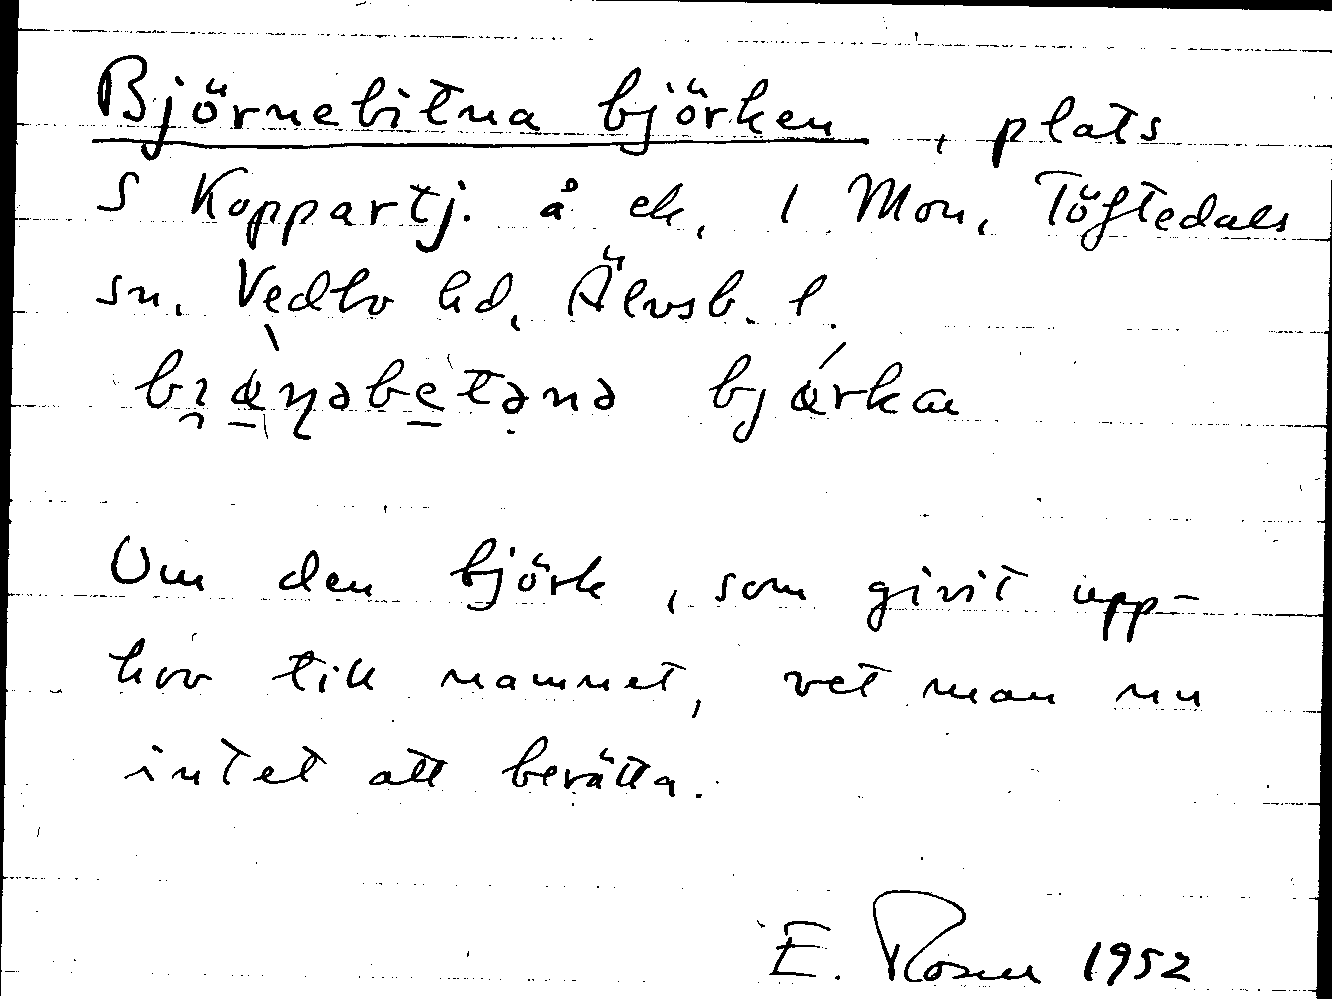 Björnebitna björken, plats
S Koppartj. å ek. 1 Mon, Töftedals
sn. Vedbo hd, Älvsb. l.
bjørkan
Om den björk, som givit upp-
hov till namnet, vet man nu
intet att berätta.
E. Rosell 1952